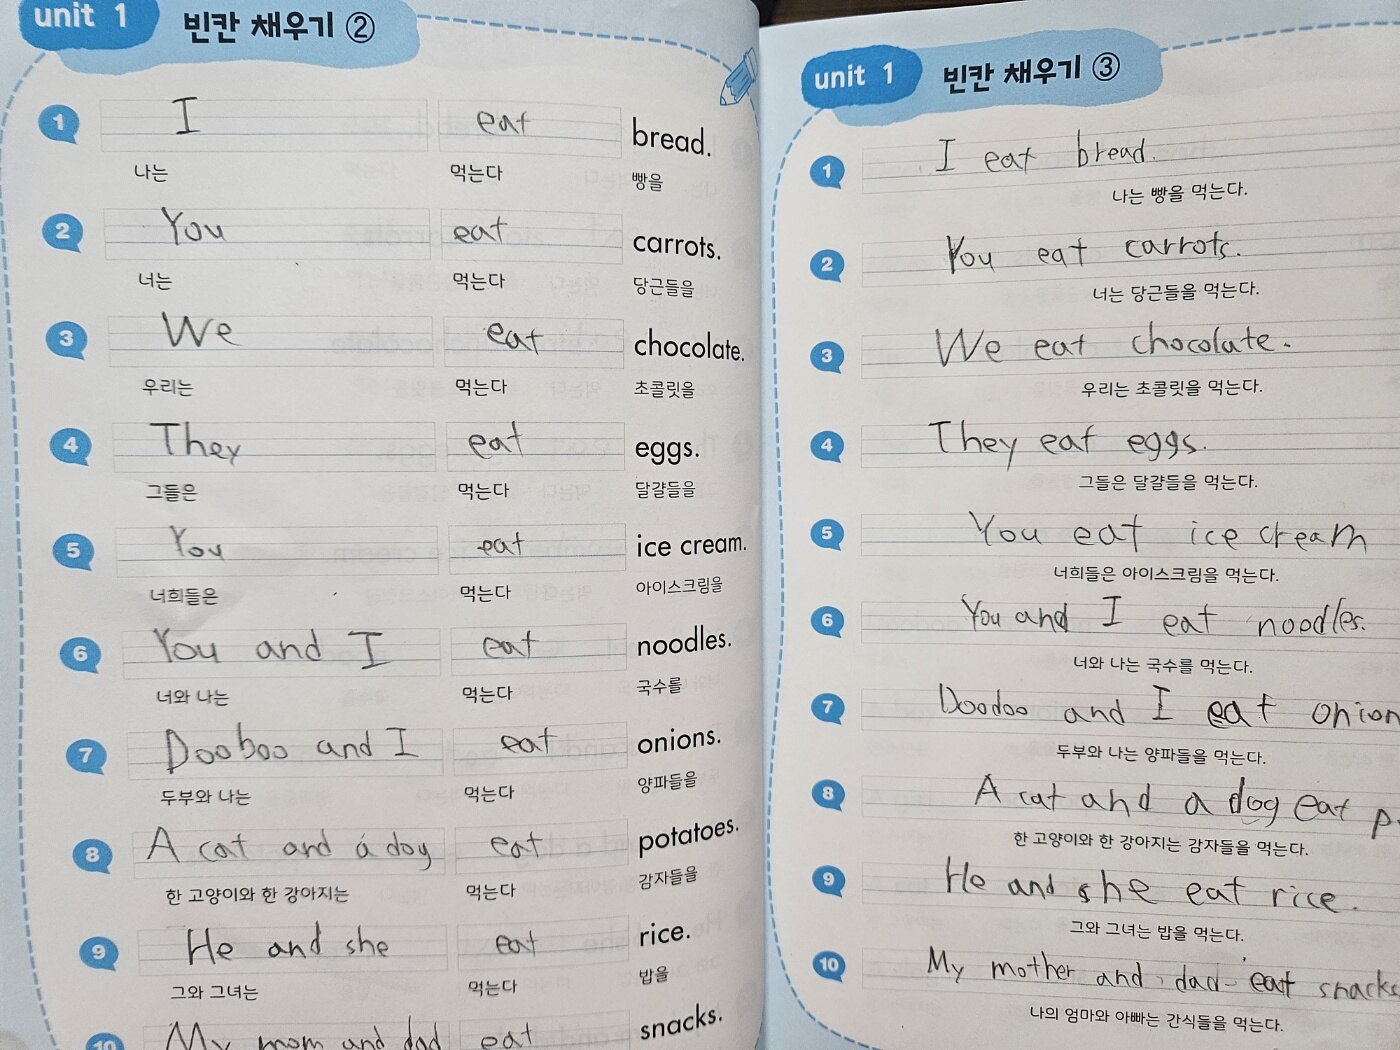 unit 1 빈칸 채우기 ②
1 I eat bread.
나는 먹는다 빵을
2 You eat carrots.
너는 먹는다 당근들을
3 We eat chocolate.
우리는 먹는다 초콜릿을
4 They eat eggs.
그들은 먹는다 달걀들을
5 You eat ice cream.
너희들은 먹는다 아이스크림을
6 You and I eat noodles.
너와 나는 먹는다 국수를
7 Dooboo and I eat onions.
두부와 나는 먹는다 양파들을
8 A cat and a dog eat potatoes.
한 고양이와 한 강아지는 먹는다 감자들을
9 He and she eat rice.
그와 그녀는 먹는다 밥을
10 My mom and dad eat snacks.
unit 1 빈칸 채우기 ③
1 I eat bread.
나는 빵을 먹는다.
2 You eat carrots.
너는 당근들을 먹는다.
3 We eat chocolate.
우리는 초콜릿을 먹는다.
4 They eat eggs.
그들은 달걀들을 먹는다.
5 You eat ice cream
너희들은 아이스크림을 먹는다.
6 You and I eat noodles.
너와 나는 국수를 먹는다.
7 Doodoo and I eat onion
두부와 나는 양파들을 먹는다.
8 A cat and a dog eat p
한 고양이와 한 강아지는 감자들을 먹는다.
9 He and she eat rice.
그와 그녀는 밥을 먹는다.
10 My mother and dad eat snacks
나의 엄마와 아빠는 간식들을 먹는다.